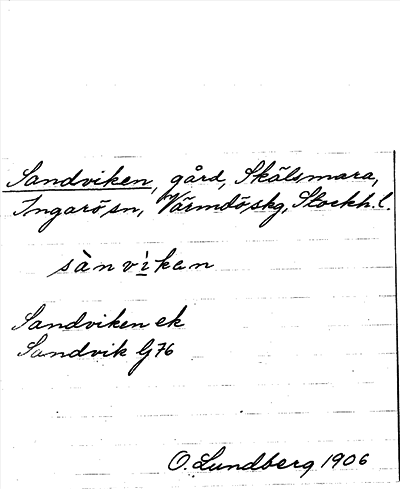 Sandviken, gård, Skälsmara,
Ingarö sn, Värmdö skg, Stockh.l.
sànvì̲kan
Sandviken ek
Sandvik G76
O. Lundberg 1906